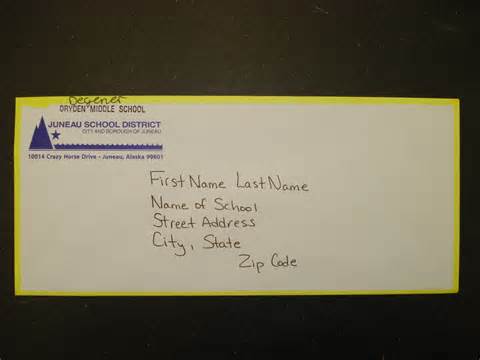 Degener
DRYDEN MIDDLE SCHOOL
JUNEAU SCHOOL DISTRICT
CITY AND BOROUGH OF JUNEAU
10014 Crazy Horse Drive • Juneau, Alaska 99801
First Name Last Name
Name of School
Street Address
City, State
Zip Code